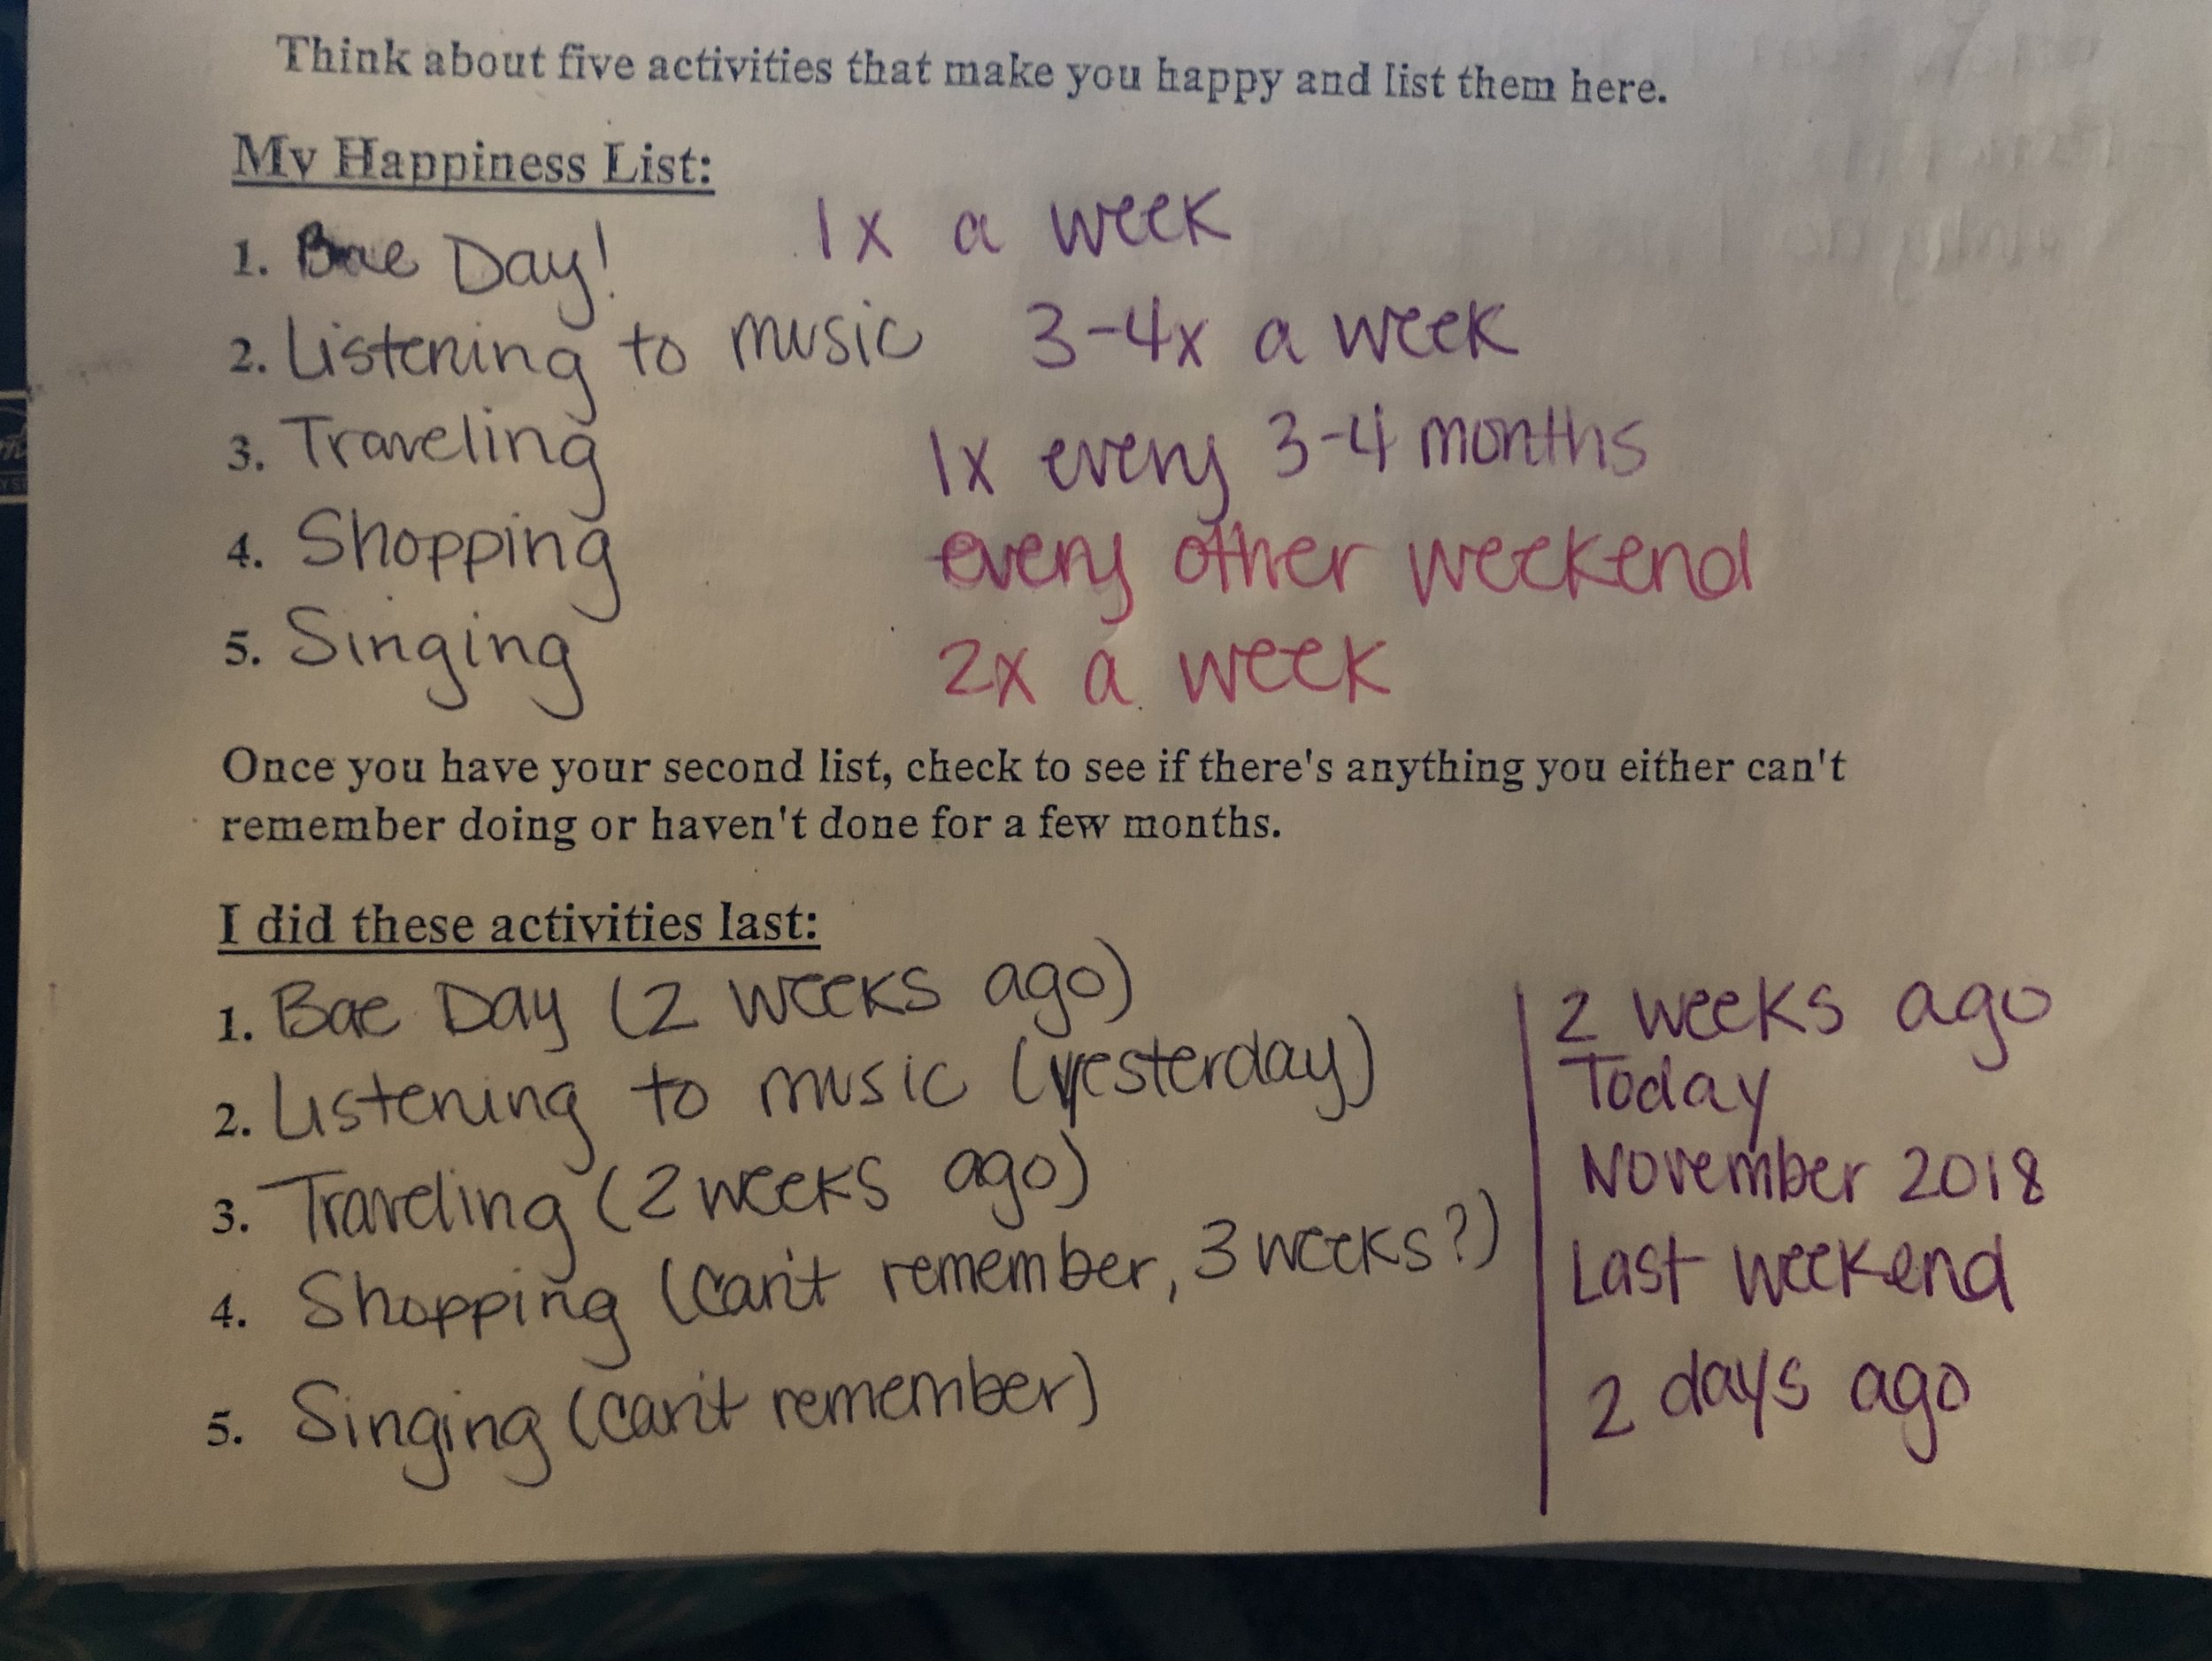 Think about five activities that make you happy and list them here.
My Happiness List:
1. Bae Day! 1x a week
2. Listening to music 3-4x a week
3. Traveling 1x every 3-4 months
4. Shopping every other weekend
5. Singing 2x a week
Once you have your second list, check to see if there's anything you either can't
remember doing or haven't done for a few months.
I did these activities last:
1. Bae Day (2 weeks ago) 2 weeks ago
2. Listening to music (yesterday) Today
3. Traveling (2 weeks ago) November 2018
4. Shopping (can't remember, 3 weeks?) Last weekend
5. Singing (can't remember) 2 days ago